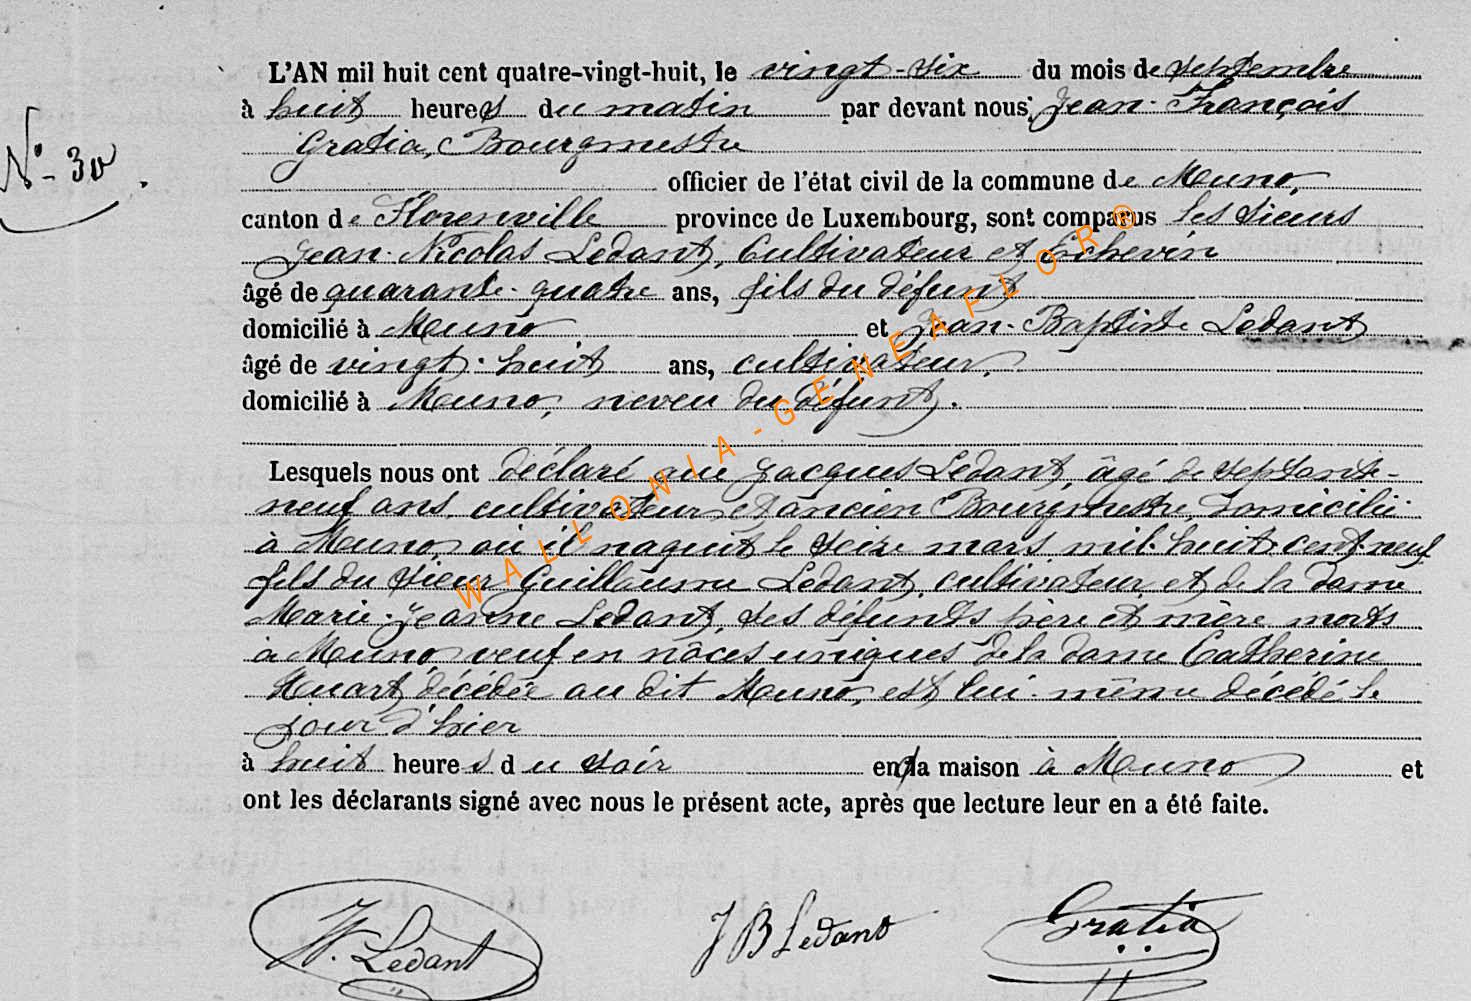 L'AN mil huit cent quatre-vingt-huit, le vingt-six du mois de septembre
à huit heures du matin par devant nous, Jean-François
Gratia, Bourgmestre
N° 30.
officier de l'état civil de la commune de Muno,
canton de Florenville province de Luxembourg, sont comparus les sieurs
Jean-Nicolas Ledant, Cultivateur et Echevin
âgé de quarante-quatre ans, fils du défunt
domicilié à Muno et Jean-Baptiste Ledant
âgé de vingt-huit ans, cultivateur,
domicilié à Muno, neveu du défunt.
Lesquels nous ont déclaré que Jacques Ledant, âgé de septante-
neuf ans, cultivateur et ancien Bourgmestre, domicilié
à Muno, où il naquit le seize mars mil-huit-cent-neuf
fils du sieur Guillaume Ledant, cultivateur, et de la dame
Marie-Jeanne Ledant, ses défunts père et mère morts
à Muno, veuf en nôces uniques de la dame Catherine
Huart, décédée au dit Muno, est lui-même décédé le
jour d'hier
à huit heures du soir en sa maison à Muno et
ont les déclarants signé avec nous le présent acte, après que lecture leur en a été faite.
WALLONIA-GENEAFLOR®
N. Ledant JB Ledant Gratia